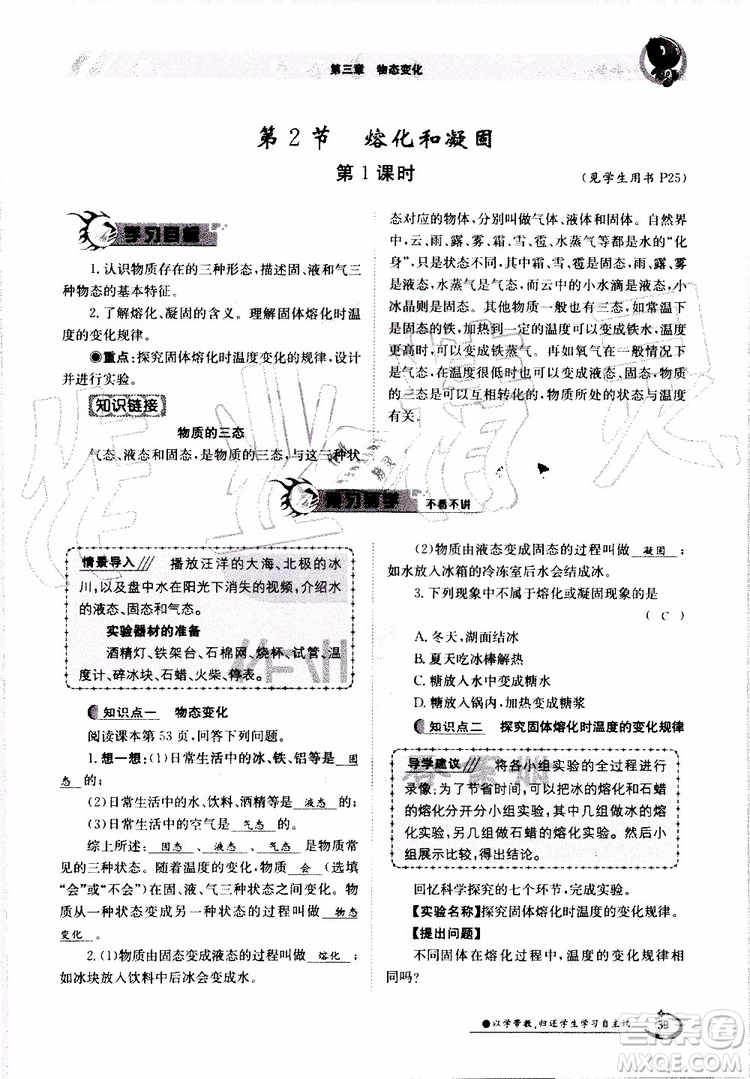 第三章 物态变化
第2节 熔化和凝固
第1课时
(见学生用书 P25)
学习目标
1.认识物质存在的三种形态，描述固、液和气三
种物态的基本特征。
2.了解熔化、凝固的含义。理解固体熔化时温
度的变化规律。
◉重点:探究固体熔化时温度变化的规律，设计
并进行实验。
知识链接
物质的三态
气态、液态和固态，是物质的三态，与这三种状
态对应的物体，分别叫做气体、液体和固体。自然界
中，云、雨、露、雾、霜、雪、雹、水蒸气等都是水的“化
身”，只是状态不同，它们是水的不同状态。雨、露、雾
是液态，水蒸气是气态，而云中的小水滴是液态，小
冰晶则是固态。其他物质一般也有三态，如常温下
是固态的铁，加热到一定的温度可以变成铁水，温度
更高时，可以变成铁蒸气。再如氧气在一般情况下
是气态，在温度很低时也可以变成液态、固态。物质
的三态是可以相互转化的，物质处于哪种状态与温度
有关。
预习导学 不看不讲
情景导入 播放汪洋的大海、北极的冰
川，以及盘中水在阳光下消失的视频，介绍水
的液态、固态和气态。
实验器材的准备
酒精灯、铁架台、石棉网、烧杯、试管、温
度计、碎冰块、石蜡、火柴、停表。
知识点一 物态变化
阅读课本第53页，回答下列问题。
1.想一想:(1)日常生活中的冰、铁、铝等是 固
态 的。
(2)日常生活中的水、饮料、酒精等是 液态 的。
(3)日常生活中的空气是 气态 的。
综上所述: 固态 、 液态 、 气态 是物质常
见的三种状态。随着温度的变化，物质 会 (选填
“会”或“不会”)在固、液、气三种状态之间变化。物质
从一种状态变成另一种状态的过程叫做 物态
变化 。
2.(1)物质由固态变成液态的过程叫做 熔化 ，
如冰块放入饮料中后冰会变成水。
(2)物质由液态变成固态的过程叫做 凝固 ，
如水放入冰箱的冷冻室后水会结成冰。
3.下列现象中不属于熔化或凝固现象的是
( C )
A.冬天，湖面结冰
B.夏天吃冰棒解热
C.糖放入水中变成糖水
D.糖放入锅内，加热变成糖水
知识点二 探究固体熔化时温度的变化规律
导学建议 将各小组实验的全过程进行
录像;为了节省时间，可以把冰的熔化和石蜡
的熔化分开分小组实验，其中几组做冰的熔
化实验，另几组做石蜡的熔化实验。然后再
展示比较，得出结论。
回忆科学探究的七个环节，完成实验。
【实验名称】探究固体熔化时温度的变化规律。
【提出问题】
不同固体在熔化过程中，温度的变化规律相
同吗?
●以学带教，归还学生学习自主权
39
答案圈
MXQE.COM